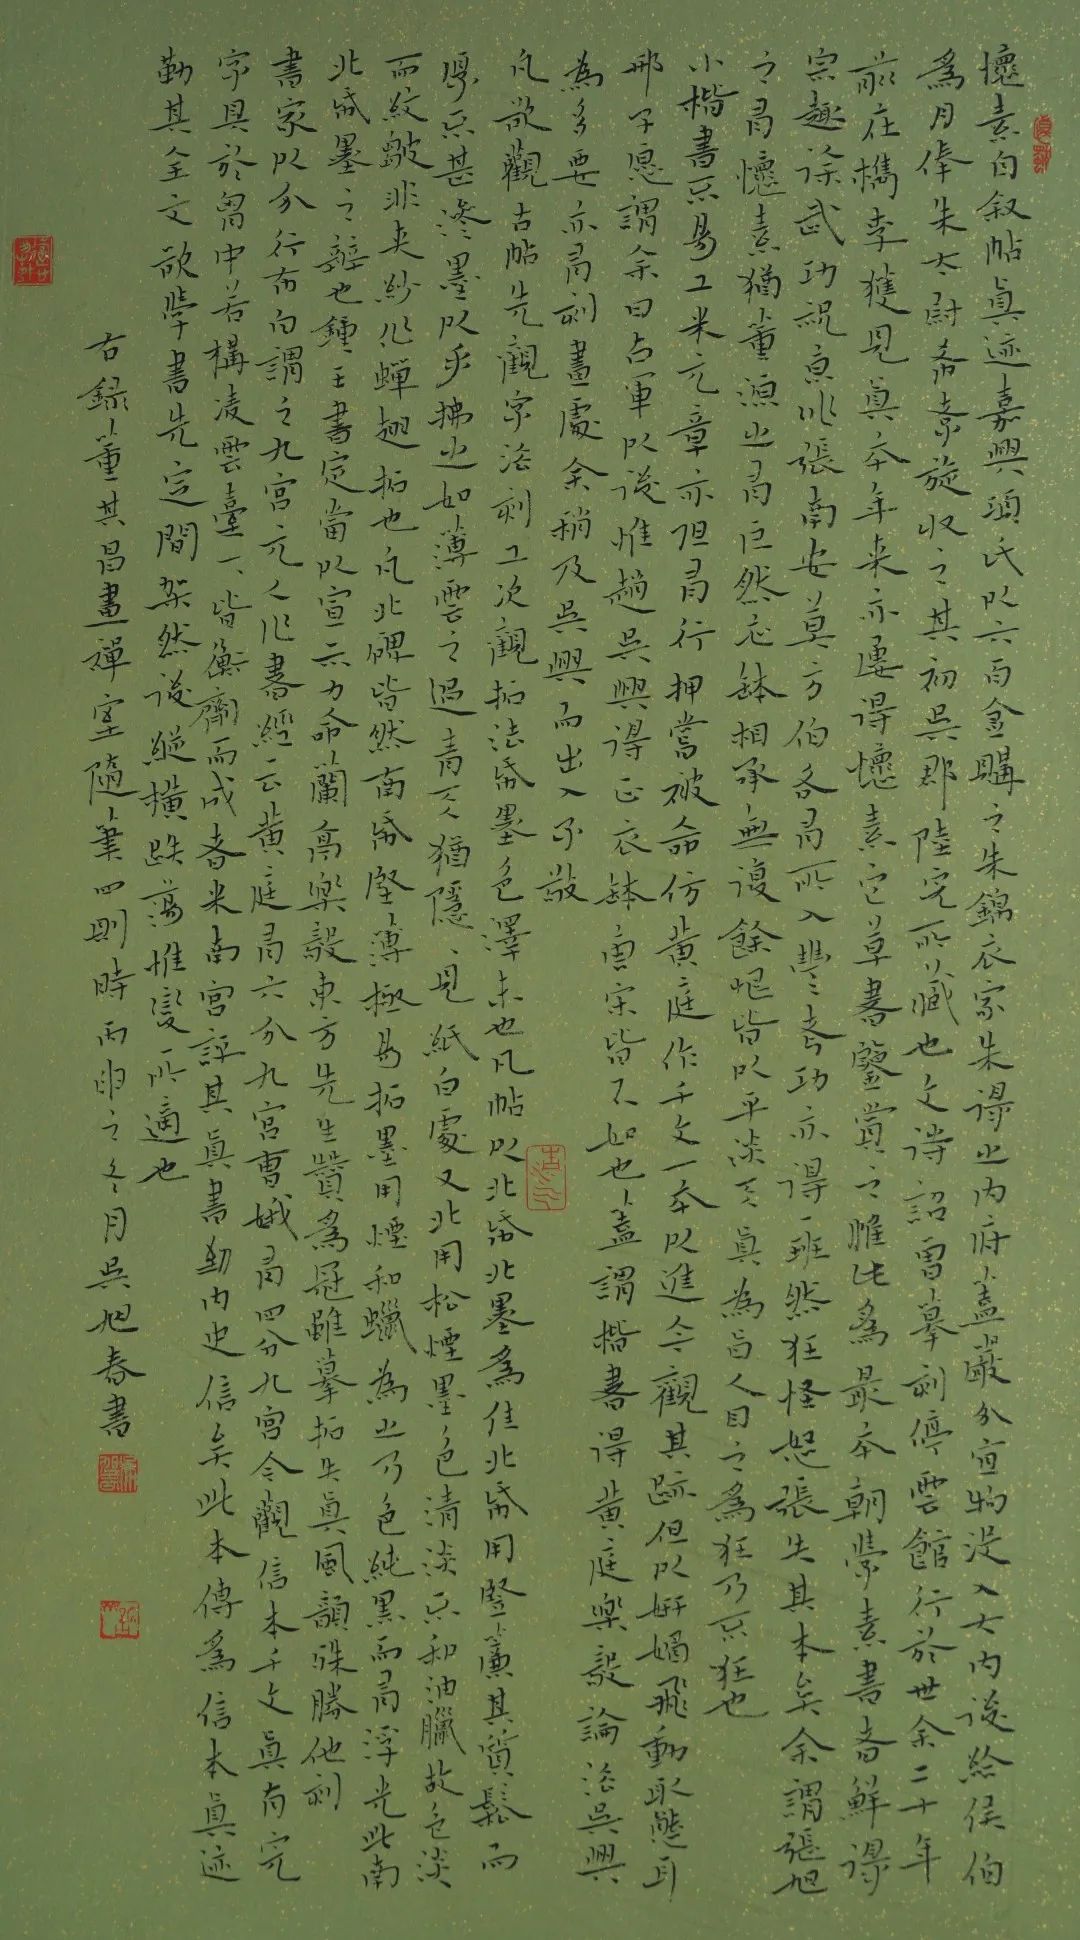 懷素自敘帖真迹嘉興項氏以六百金購之朱錦衣家朱得之內府蓋嚴分宜物沒入大內後給侯伯
為月俸朱太尉希孝旋收之其初吳郡陸完所藏也文待詔曾摹刻停雲館行於世余二十年
前在檇李獲見真本年來亦屢得懷素它草書鑒賞之惟此為最本朝學素書者鮮得
宗趣徐武功祝京兆張南安莫方伯各有所入豐考功亦得一班然狂怪怒張失其本矣余謂張旭
之有懷素猶董源之有巨然衣鉢相承無復餘恨皆以平淡天真為旨人目之為狂乃不狂也
小楷書不易工米元章亦但有行押嘗被命仿黃庭作千文一本以進今觀其跡但以妍媚飛動取態耳
邢子愿謂余曰右軍以後惟趙吳興得正衣鉢唐宋皆不如也蓋謂楷書得黃庭樂毅論法吳興
為多要亦有刻畫處余稍及吳興而出入不敢
凡欲觀古帖先觀字法刻工次觀拓法紙墨色澤末也凡帖以北紙北墨為佳北紙用豎簾其質鬆而
厚不甚滲墨以手拂之如薄雲之過青天猶隱、見紙白處又北用松煙墨色清淡不和油臘故色淡
而紋皺非夾紗作蟬翅拓也凡北碑皆然南紙堅薄極易拓墨用煙和蠟為之乃色純黑而有浮光此南
北紙墨之辯也鍾王書定當以宣示力命蘭亭樂毅東方先生贊為冠雖摹拓失真風韻殊勝他刻
書家以分行布白謂之九宮元人作書經云黃庭有六分九宮曹娥有四分九宮今觀信本千文真有完
字具於胸中若構凌雲臺一、皆衡劑而成者米南宮評其真書勒內史信矣此本傳為信本真迹
勒其全文欲學書先定間架然後縱橫跌蕩惟變所適也
右錄董其昌畫禪室隨筆四則時丙申之冬月吳旭春書